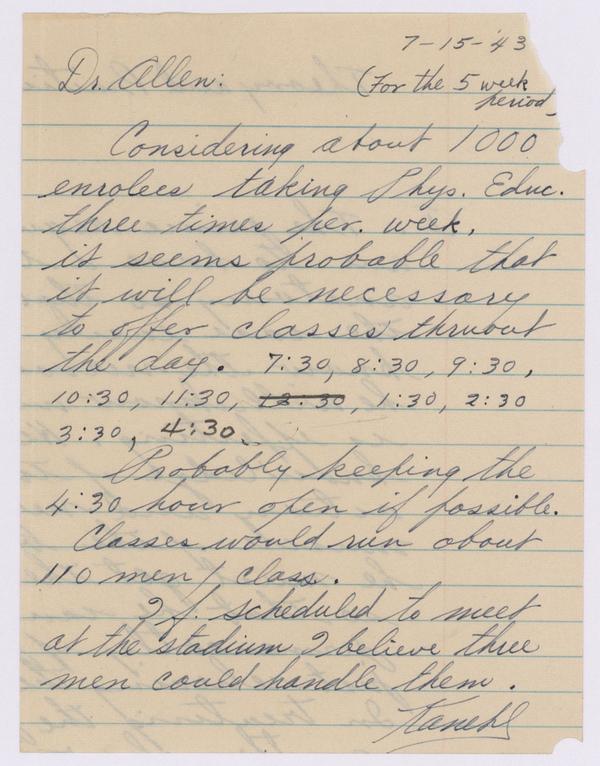 7-15-'43
Dr. Allen: (For the 5 week
period
Considering about 1000
enrolees taking Phys. Educ.
three times per. week,
it seems probable that
it will be necessary
to offer classes thruout
the day. 7:30, 8:30, 9:30,
10:30, 11:30, 12:30, 1:30, 2:30
3:30, 4:30.
Probably keeping the
4:30 hour open if possible.
Classes would run about
110 men / class.
If scheduled to meet
at the stadium I believe three
men could handle them.
Kanehl